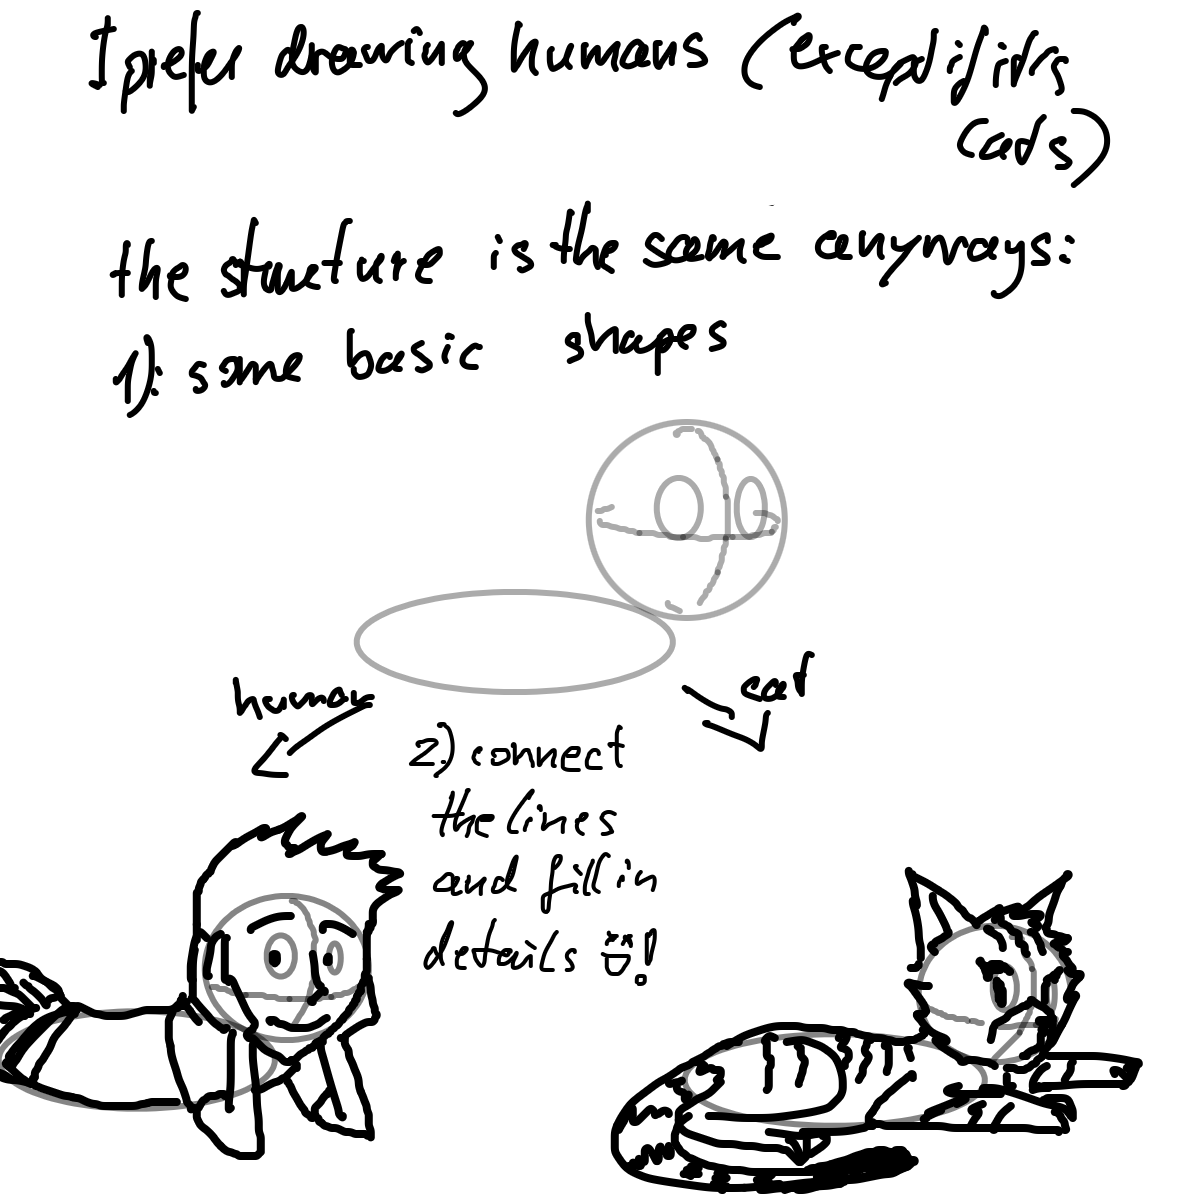 I prefer drawing humans (except if it's
cats)
the structure is the same anyways:
1): some basic shapes
human
cat
2.) connect
the lines
and fill in
details !